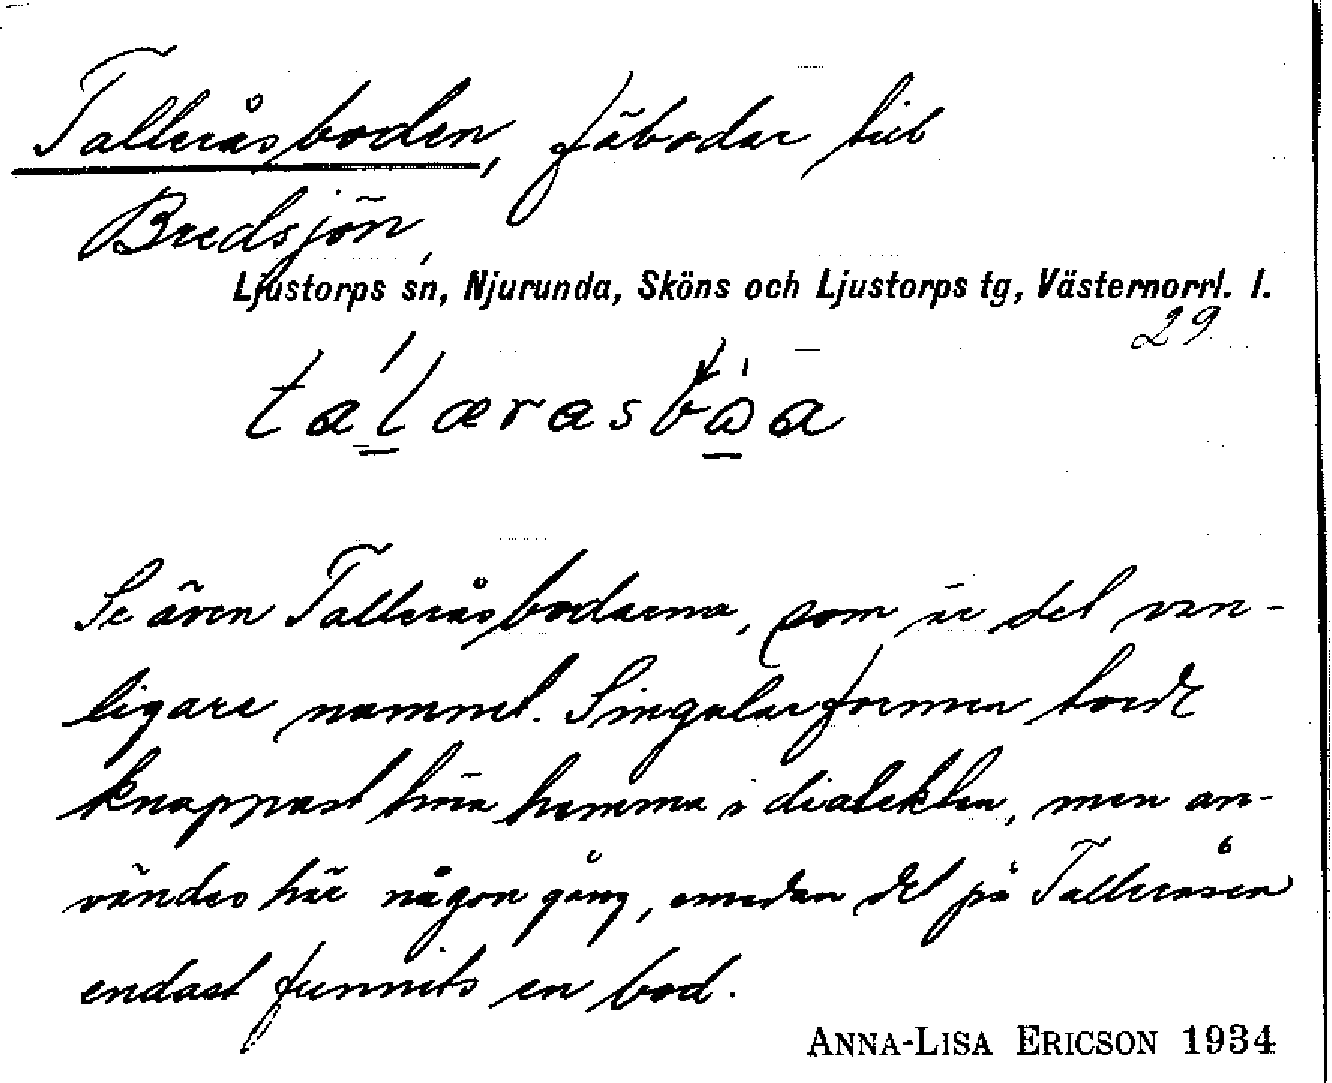 Talleråsboden, fäbodar till
Bredsjön,
Ljustorps sn, Njurunda, Sköns och Ljustorps tg, Västernorrl. l.
29
Se även Talleråsbodarna, som är det van-
ligare namnet. Singularformen torde
knappast höra hemma i dialekten, men an-
vändes här någon gång, emedan det på Talleråsen
endast funnits en bod.
ANNA-LISA ERICSON 1934